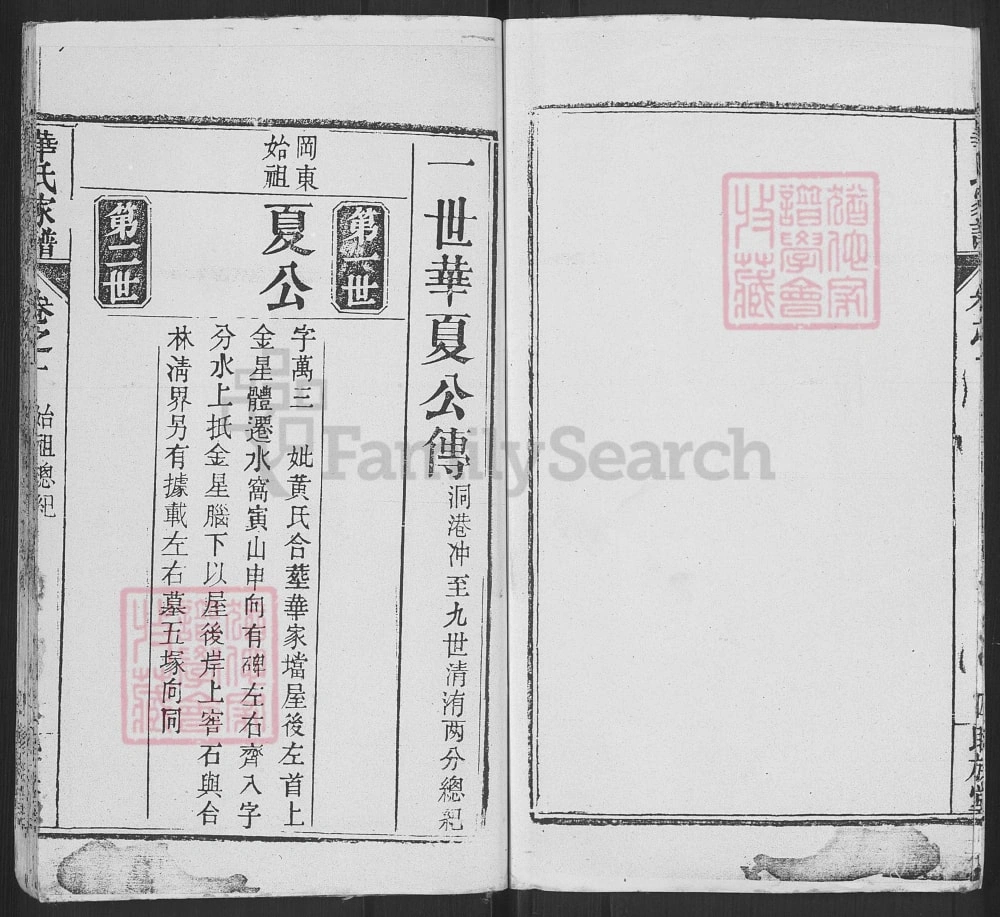 一世華夏公傳洞港冲至九世清洧两分總紀
岡東
始祖
第一世
夏公
字萬三 妣黃氏合塟華家壋屋後左首上
金星體遷水窩寅山申向有碑左右齊入字
分水上抵金星腦下以屋後岸上窖石與合
林淸界另有據載左右墓五塚向同
第二世
華氏家譜
卷之一
始祖總紀
譜學會
特藏
FamilySearch